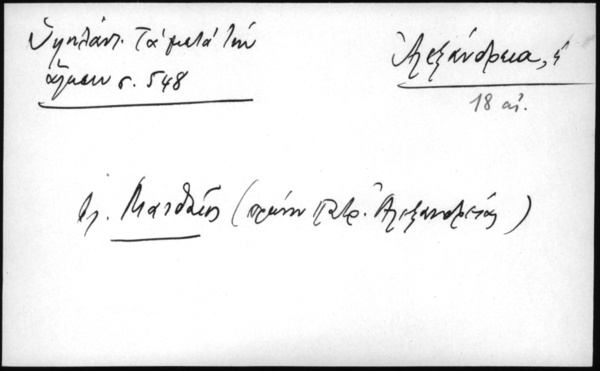 Ὑψηλάντ. Τὰ μετὰ τὴν
ἅλωσιν σ. 548
Ἀλεξάνδρεια, ἡ
18 αἰ.
βλ. Ματθαῖος (πρώην Πατρ. Ἀλεξανδρείας)